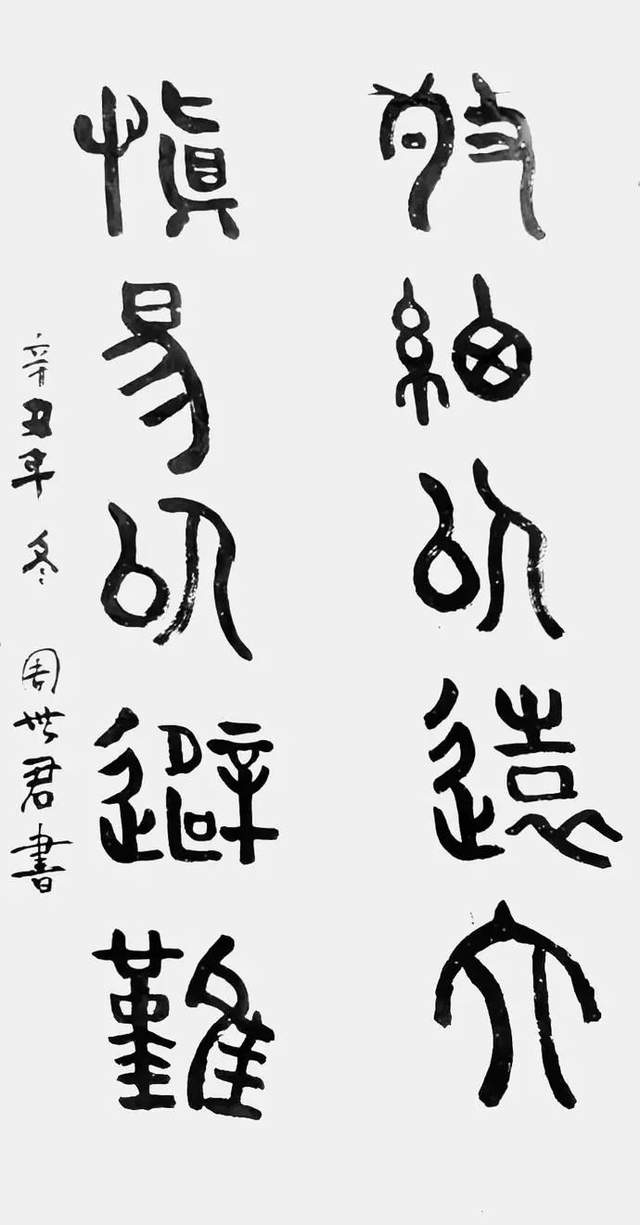 敬細以遠大
慎易以避難
辛丑年冬 周世君書